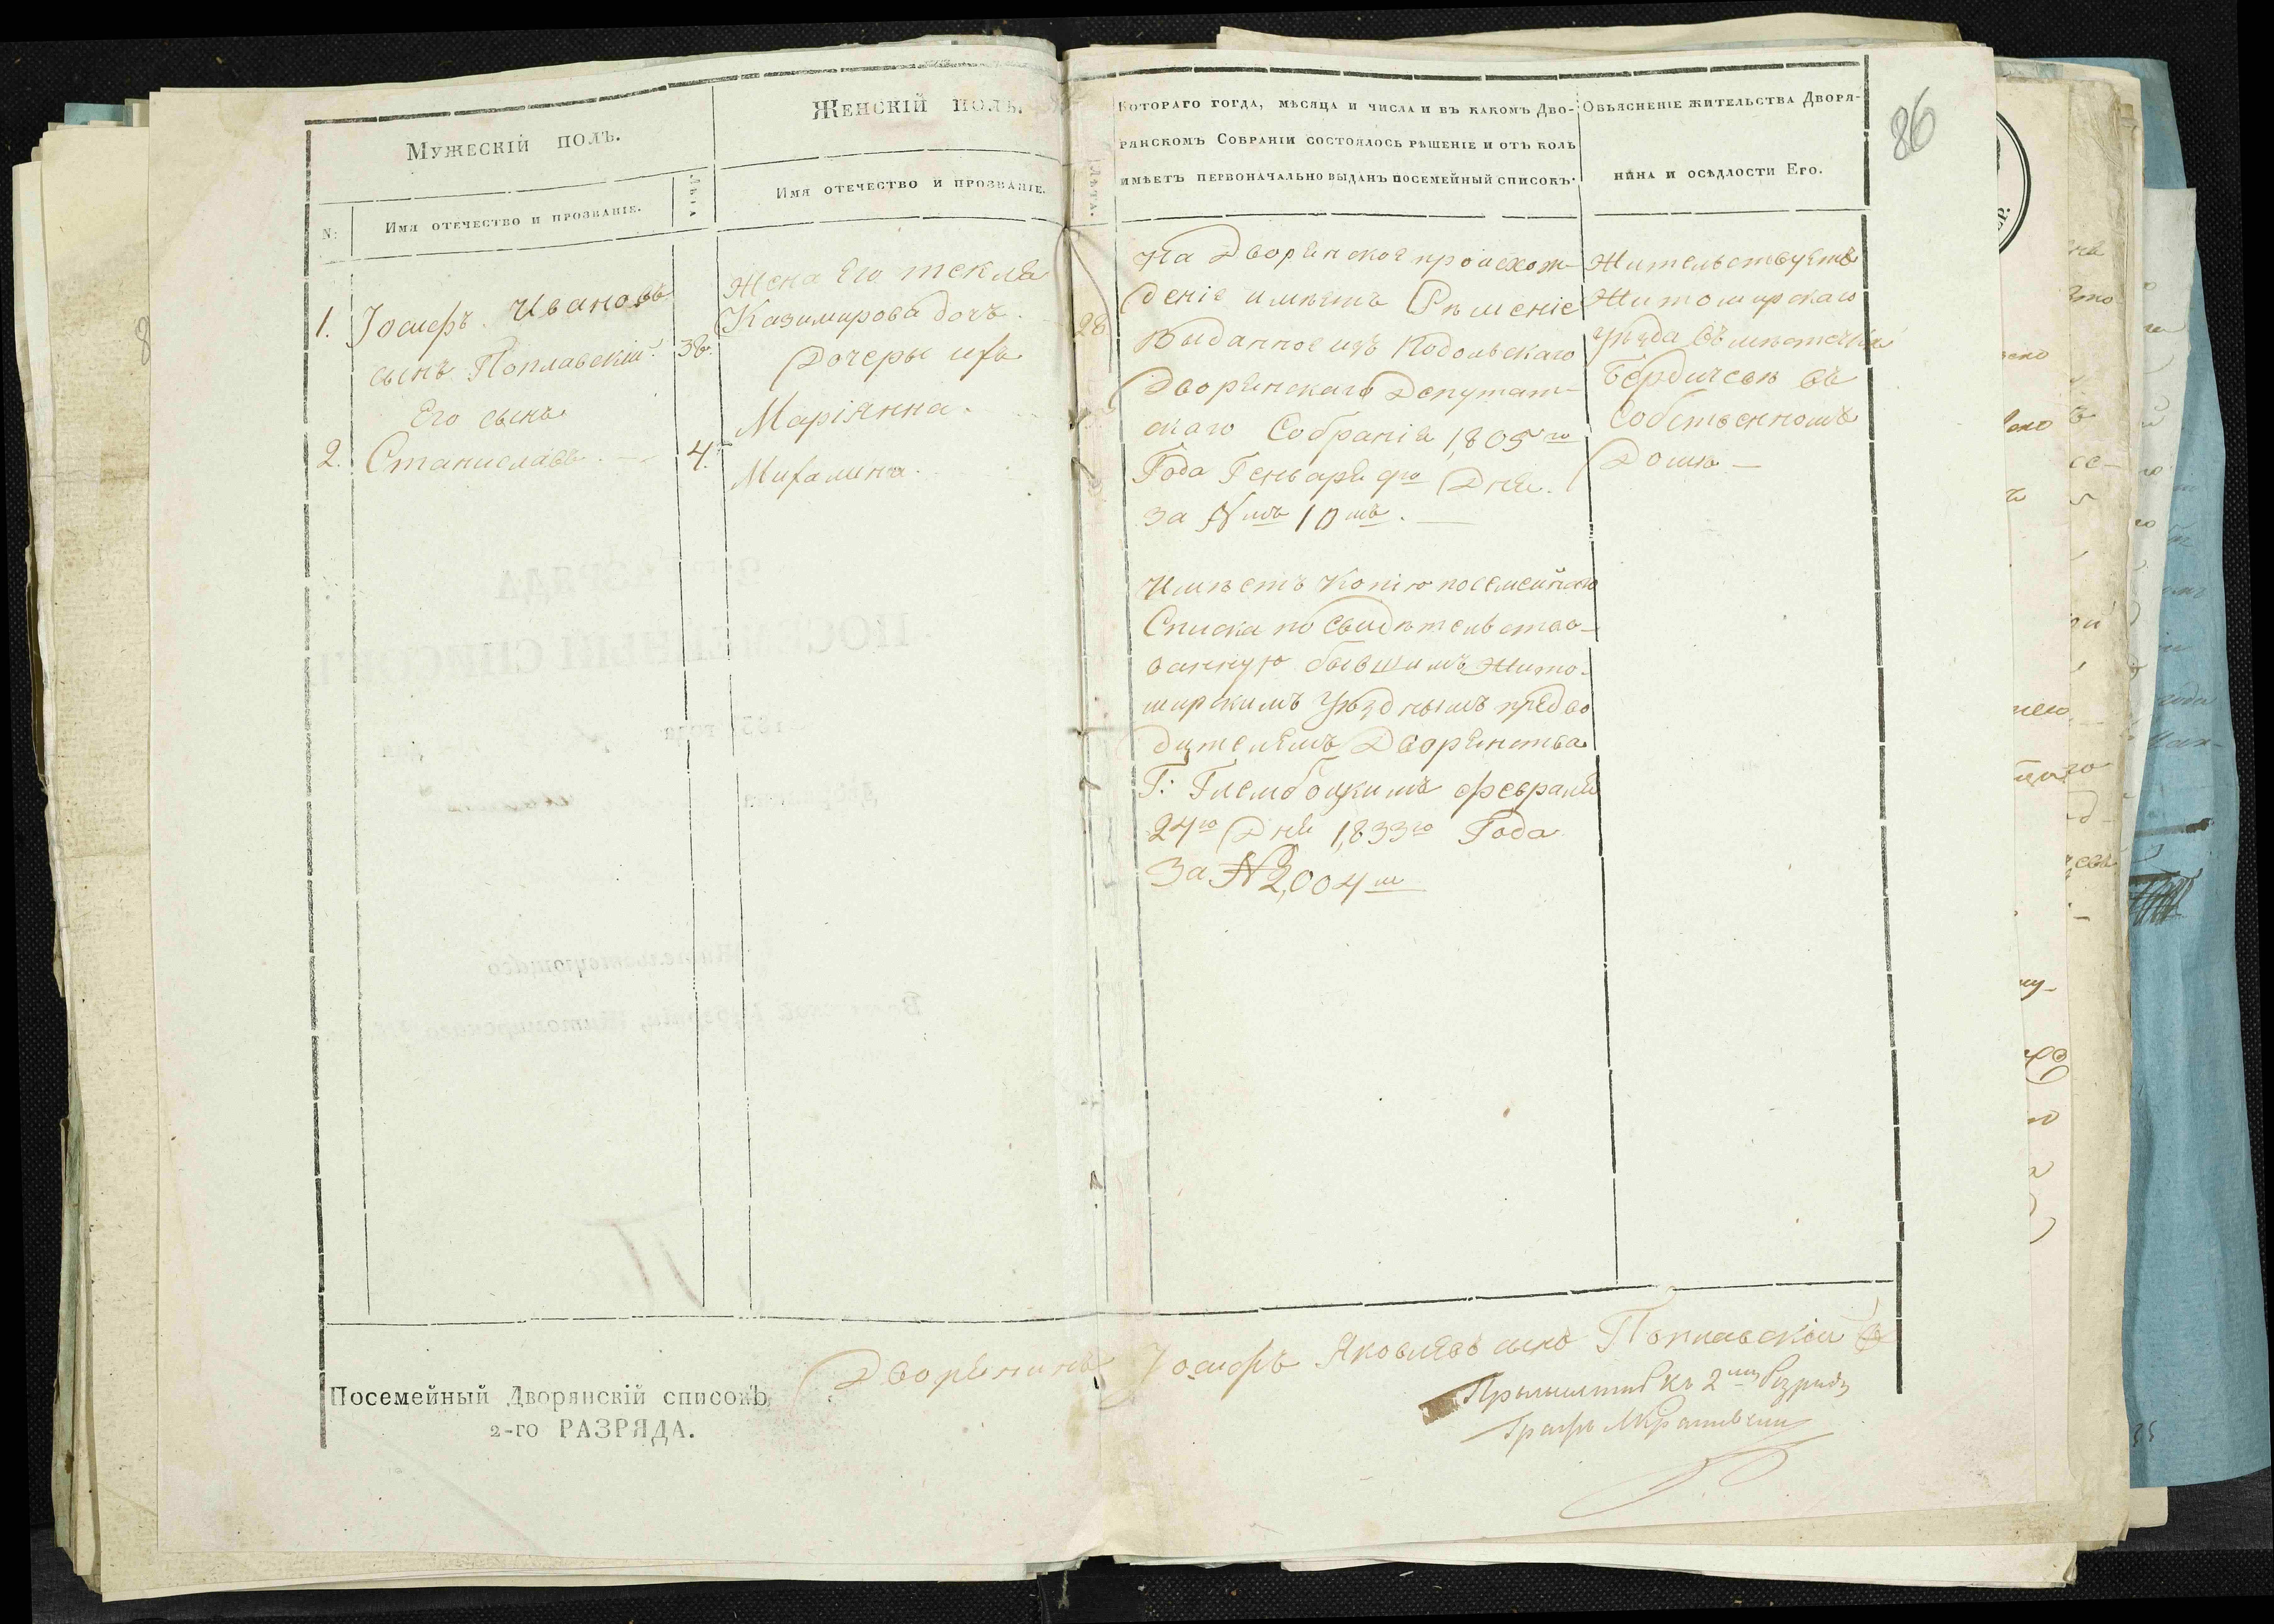 86
Мужескій полъ.
Женскій полъ.
Котораго года, мѣсяца и числа и въ какомъ Дво-
рянскомъ Собраніи состоялось рѣшеніе и отъ коль
имѣетъ первоначально выданъ посемейный списокъ.
Объясненіе жительства Дворя-
нина и осѣдлости Его.
N:
Имя отечество и прозваніе.
Лѣта
Имя отечество и прозваніе.
Лѣта.
1. Іосифъ Ивановъ
сынъ Поплавскій. 38.
Его сынъ
2. Станиславъ. — 4.
Жена Его текля
Казимирова дочъ. 28
Дочеры ихъ
Маріянна.
Михалина.
На Дворянское происхож-
деніе имѣетъ Рѣшеніе
Выданное изъ Подольскаго
Дворянскаго Депутат-
скаго Собранія 1,805го
Года Генваря 9го Дня.
за Nмъ 10мъ. —
Имѣетъ Копію посемейнаго
Списка по свидѣтельство-
ванную бывшимъ Жито-
мирскимъ Уѣзднымъ предво
дителемъ Дворянства
Г: Глембоцкимъ февраля
24го Дня 1,833го Года
За N 2,004м
Жительствуетъ
Житомирскаго
уѣзда въ мѣстечкѣ
Бердичевѣ въ
собственномъ
Домѣ —
Дворянинъ Іосифъ Яковлевъ сынъ Поплавскій
Посемейный Дворянскій списокъ
2-го РАЗРЯДА.
къ 2му
Графъ